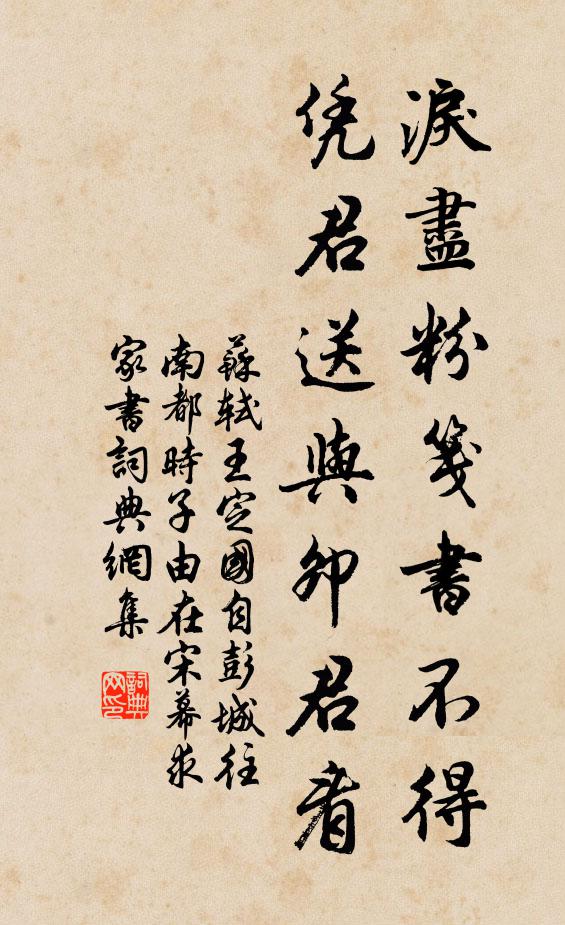 淚盡粉箋書不得
凭君送與卯君看
蘇軾王定國自彭城往
南都時子由在宋幕求
家書詞典網集
詞典網印